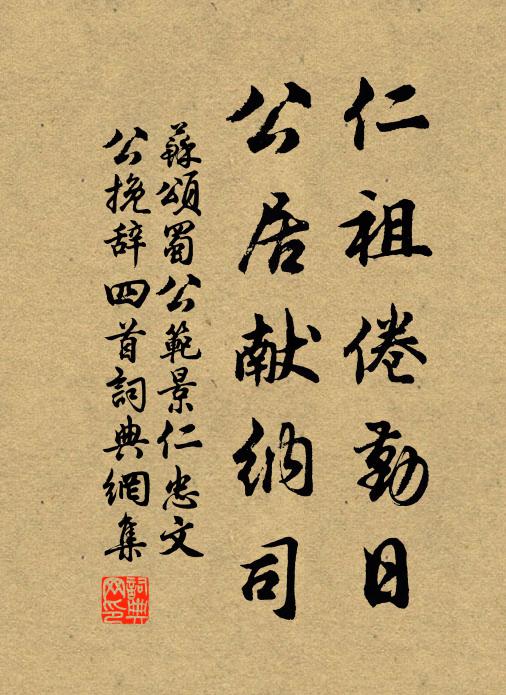 仁祖倦勤日
公居献纳司
蘇頌蜀公範景仁忠文
公挽辞四首詞典網集
詞典网印